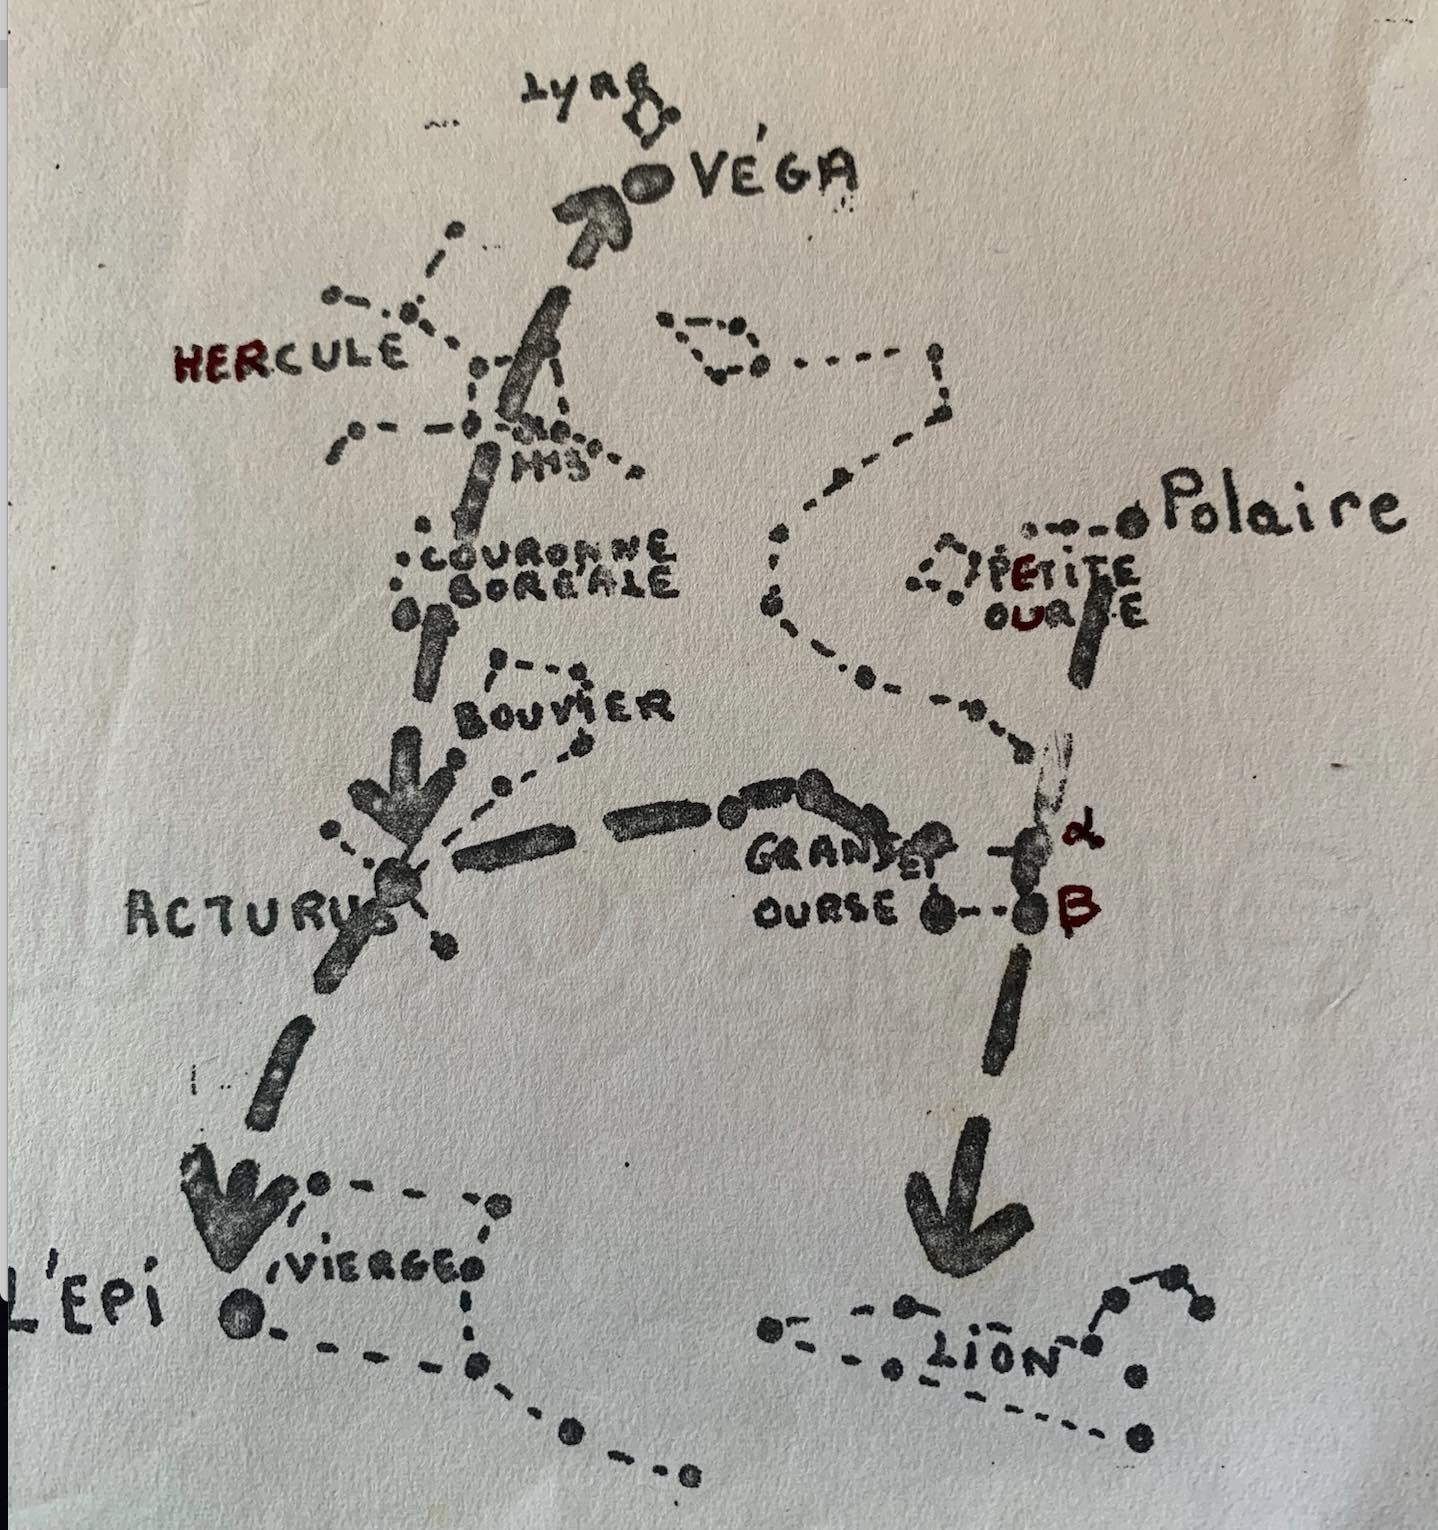 LYRE
VÉGA
HERCULE
M13
Polaire
COURONNE
BORÉALE
PETITE
OURSE
BOUVIER
α
GRANDE
OURSE
β
ACTURUS
VIERGE
L'EPi
LiON